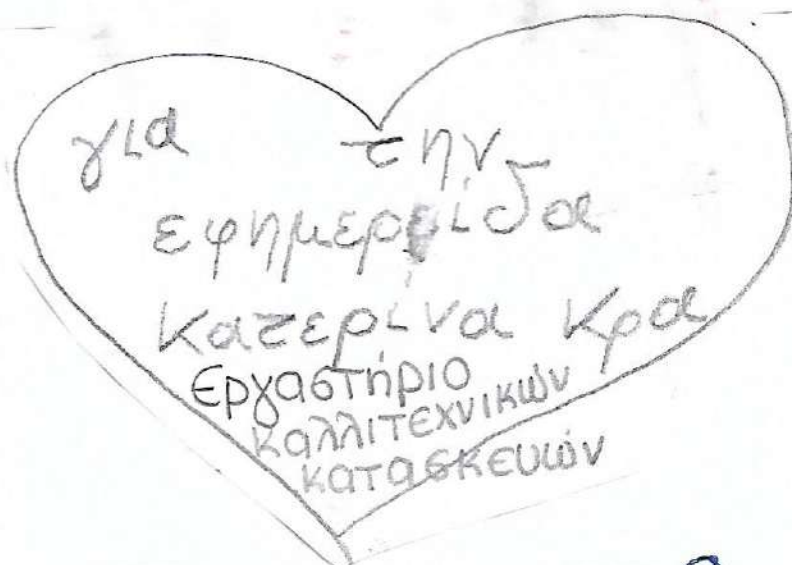 για την
εφημερίδα
Κατερίνα Κρα
Εργαστήριο
καλλιτεχνικών
κατασκευών